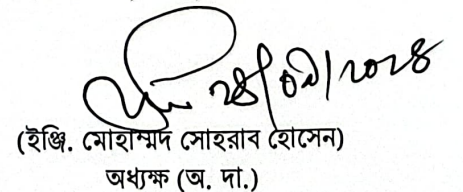 ২৪/০৯/২০২৪
(ইঞ্জি. মোহাম্মদ সোহরাব হোসেন)
অধ্যক্ষ (অ. দা.)